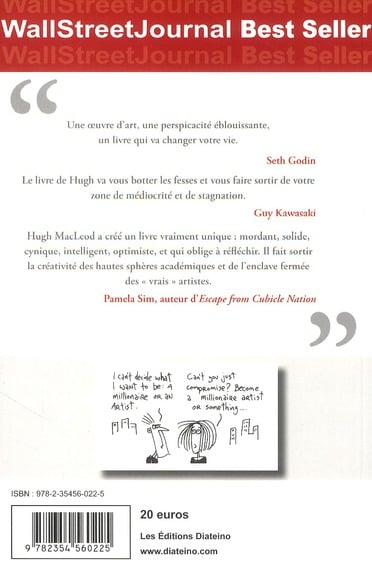 WallStreetJournal Best Seller
WallStreetJournal Best Seller
WallStreetJournal Best Seller
“
Une œuvre d'art, une perspicacité éblouissante,
un livre qui va changer votre vie.
Seth Godin
Le livre de Hugh va vous botter les fesses et vous faire sortir de votre
zone de médiocrité et de stagnation.
Guy Kawasaki
Hugh MacLeod a créé un livre vraiment unique : mordant, solide,
cynique, intelligent, optimiste, et qui oblige à réfléchir. Il fait sortir
la créativité des hautes sphères académiques et de l'enclave fermée
des « vrais » artistes.
Pamela Sim, auteur d'Escape from Cubicle Nation
”
I can't decide what
I want to be: A
millionaire or an
Artist.
Can't you just
compromise? Become
a millionaire artist
or something...
ISBN : 978-2-35456-022-5
9 782354 560225
20 euros
Les Éditions Diateino
www.diateino.com